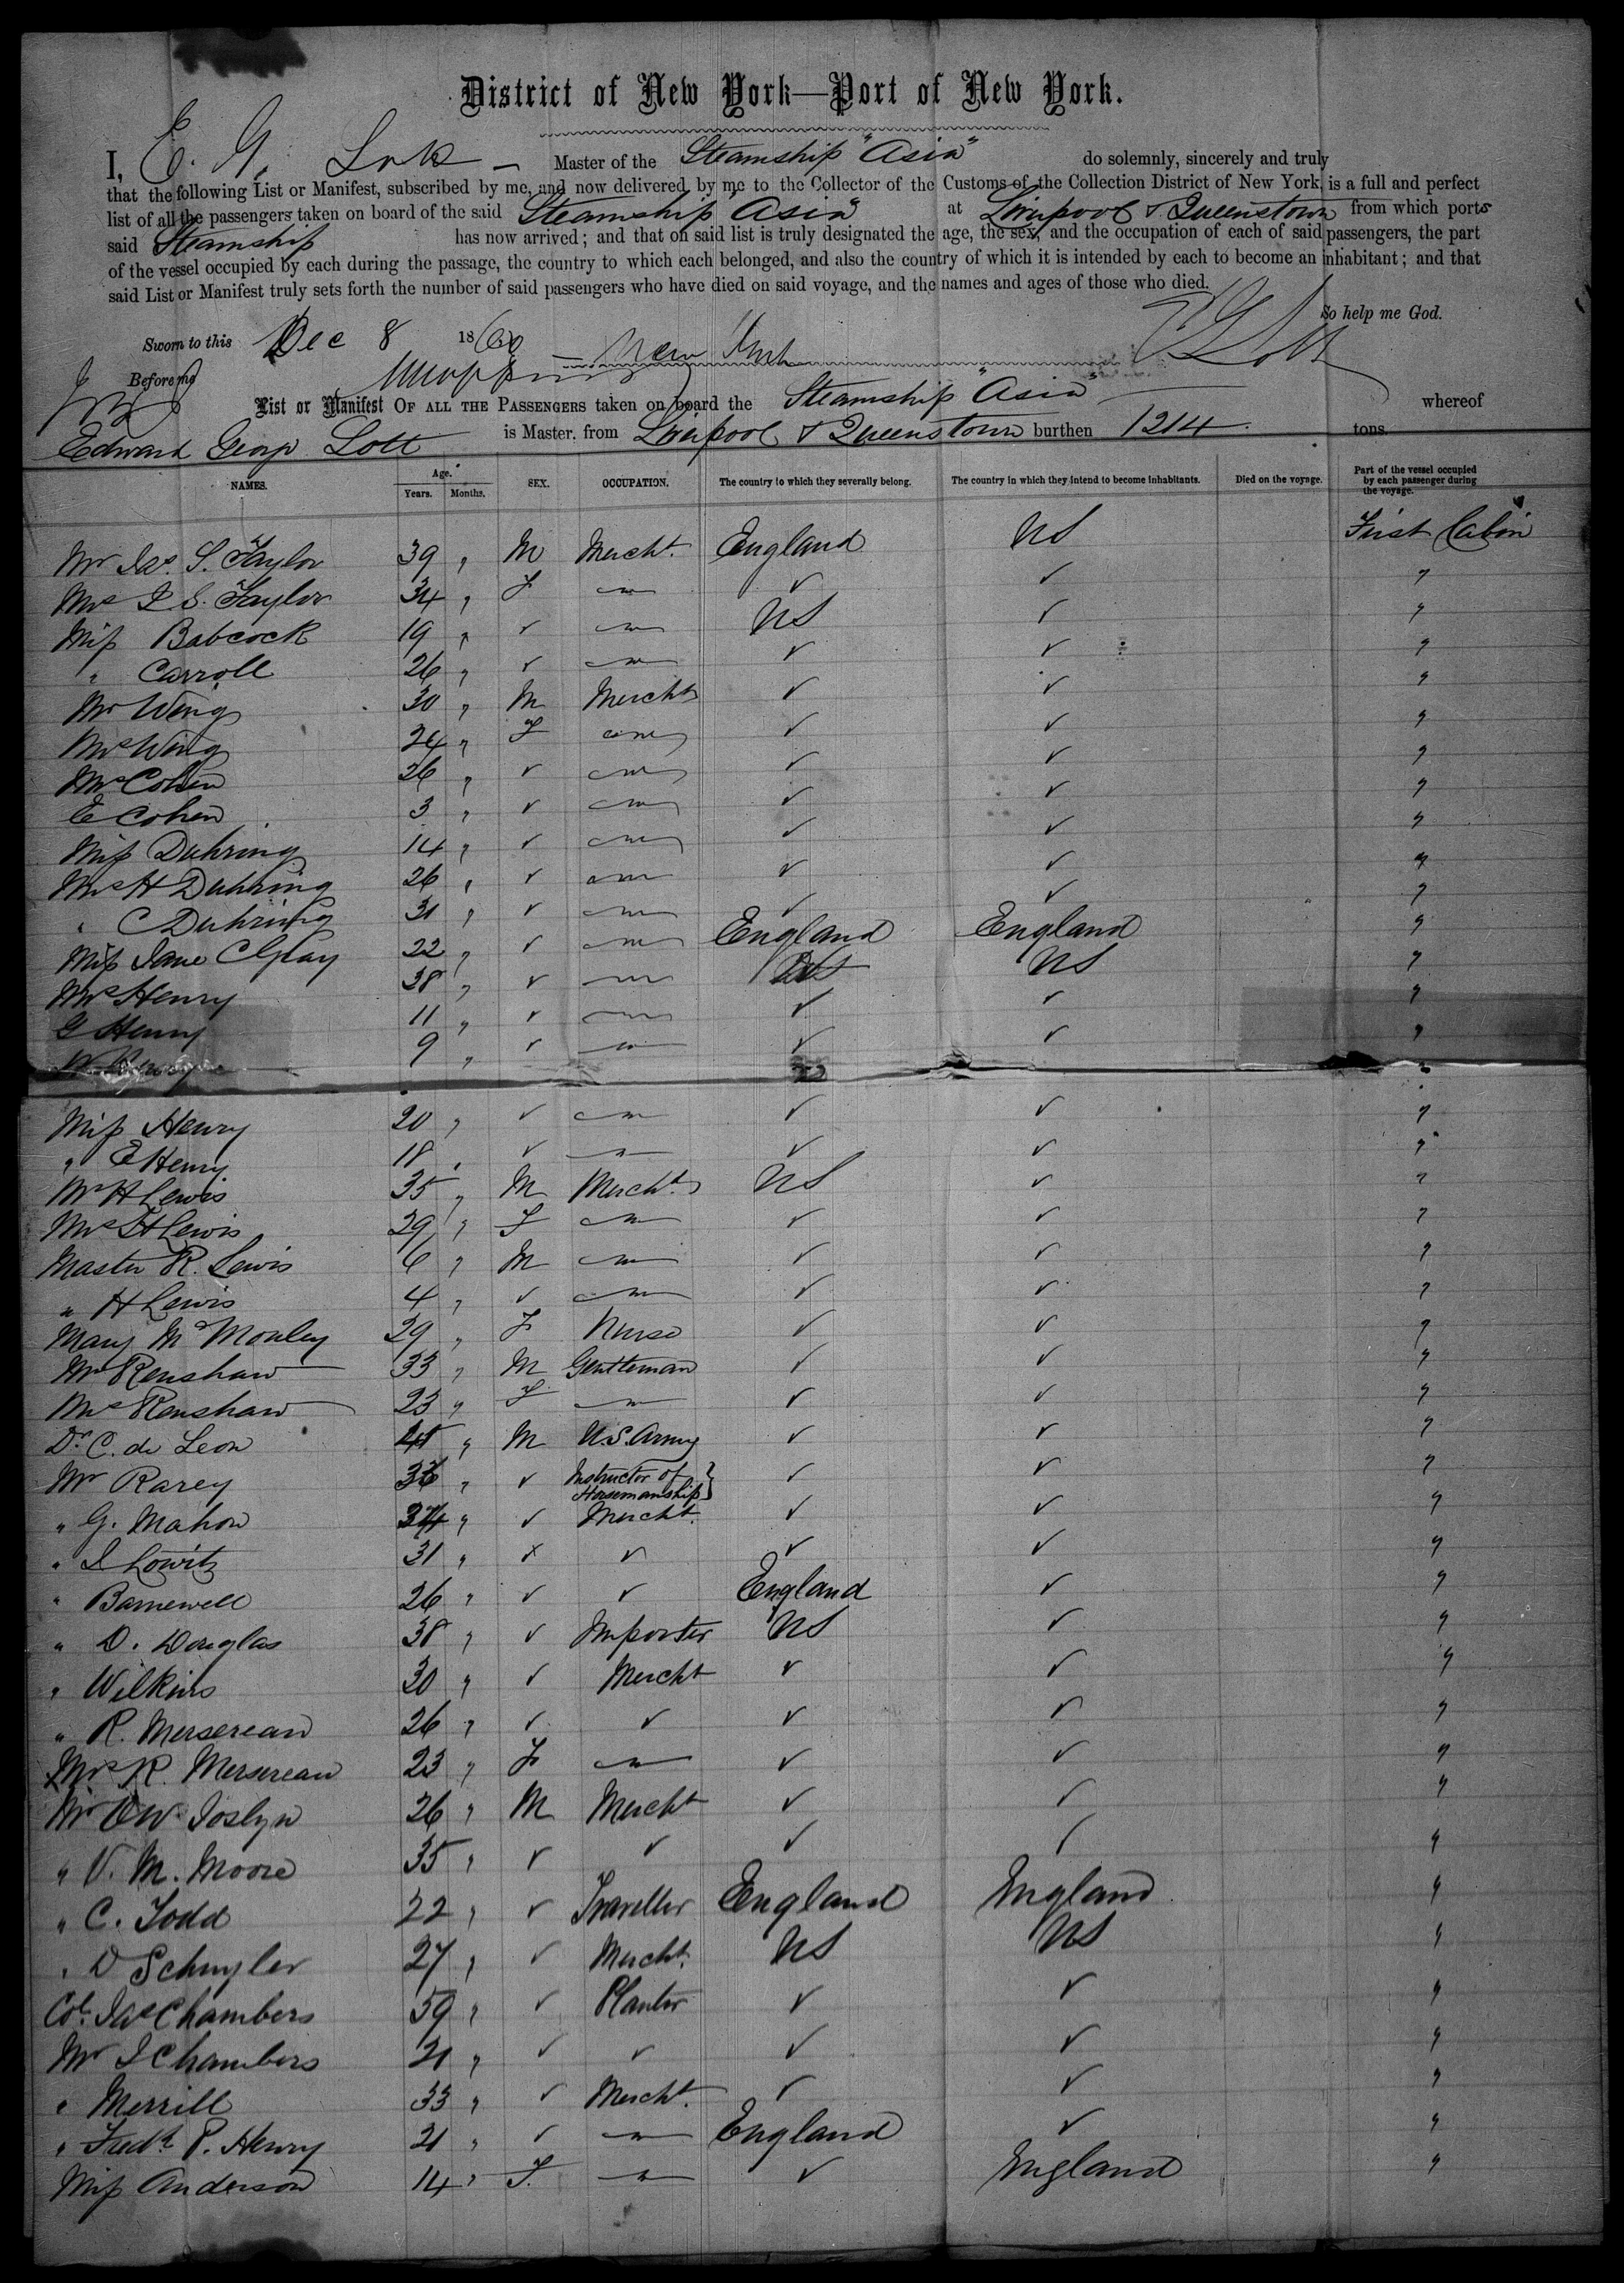 District of New York—Port of New York.
I, E. G. Lott — Master of the Steamship "Asia" do solemnly, sincerely and truly
that the following List or Manifest, subscribed by me, and now delivered by me to the Collector of the Customs of the Collection District of New York, is a full and perfect
list of all the passengers taken on board of the said Steamship "Asia" at Liverpool & Queenstown from which ports
said Steamship has now arrived; and that on said list is truly designated the age, the sex, and the occupation of each of said passengers, the part
of the vessel occupied by each during the passage, the country to which each belonged, and also the country of which it is intended by each to become an inhabitant; and that
said List or Manifest truly sets forth the number of said passengers who have died on said voyage, and the names and ages of those who died.
So help me God.
Sworn to this Dec 8 1860 — New York E G Lott
Before me
List or Manifest OF ALL THE PASSENGERS taken on board the Steamship "Asia" whereof
Edward George Lott is Master, from Liverpool & Queenstown burthen 1214 tons.
NAMES. Age. Years. Months. SEX. OCCUPATION. The country to which they severally belong. The country in which they intend to become inhabitants. Died on the voyage. Part of the vessel occupied by each passenger during the voyage.
Mr Jas. S. Taylor 39 " M Mercht. England US First Cabin
Mrs J S. Taylor 34 " F — ✓ ✓ "
Miss Babcock 19 " ✓ — US ✓ "
" Carroll 26 " ✓ — ✓ ✓ "
Mr Wing 30 " M Mercht ✓ ✓ "
Mrs Wing 24 " F — ✓ ✓ "
Mrs Cohen 26 " ✓ — ✓ ✓ "
E Cohen 3 " ✓ — ✓ ✓ "
Miss Duhring 14 " ✓ — ✓ ✓ "
Mrs H Duhring 26 " ✓ — ✓ ✓ "
" C Duhring 31 " ✓ — ✓ ✓ "
Miss Jane C Gray 22 " ✓ — England England "
Mrs Henry 38 " ✓ — US US "
G Henry 11 " ✓ — ✓ ✓ "
Henry 9 " ✓ — ✓ ✓ "
Miss Henry 20 " ✓ — ✓ ✓ "
" E Henry 18 " ✓ — ✓ ✓ "
Mr H Lewis 35 " M Mercht. US ✓ "
Mrs H Lewis 29 " F — ✓ ✓ "
Master R. Lewis 6 " M — ✓ ✓ "
" H Lewis 4 " ✓ — ✓ ✓ "
Mary McMonley 29 " F Nurse ✓ ✓ "
Mr Renshaw 33 " M Gentleman ✓ ✓ "
Mrs Renshaw 23 " F — ✓ ✓ "
Dr. C. de Leon " M U.S. Army ✓ ✓ "
Mr Rarey " ✓ Instructor of Horsemanship } ✓ ✓ "
" G. Mahon 34 " ✓ Mercht. ✓ ✓ "
" I Lowitz 31 " ✓ ✓ ✓ ✓ "
" Barnewell 26 " ✓ ✓ England ✓ "
" D. Douglas 38 " ✓ Importer US ✓ "
" Wilkins 30 " ✓ Mercht ✓ ✓ "
" R. Mersereau 26 " ✓ ✓ ✓ ✓ "
Mrs R. Mersereau 23 " F — ✓ ✓ "
Mr O W Joslyn 26 " M Mercht ✓ ✓ "
" V. M. Moore 35 " ✓ ✓ ✓ ✓ "
" C. Todd 22 " ✓ Traveller England England "
" D Schuyler 27 " ✓ Mercht. US US "
Col. Jas Chambers 59 " ✓ Planter ✓ ✓ "
Mr J Chambers 21 " ✓ ✓ ✓ ✓ "
" Merrill 33 " ✓ Mercht. ✓ ✓ "
" Fredk P. Henry 21 " ✓ — England ✓ "
Miss Anderson 14 " F. — ✓ England "